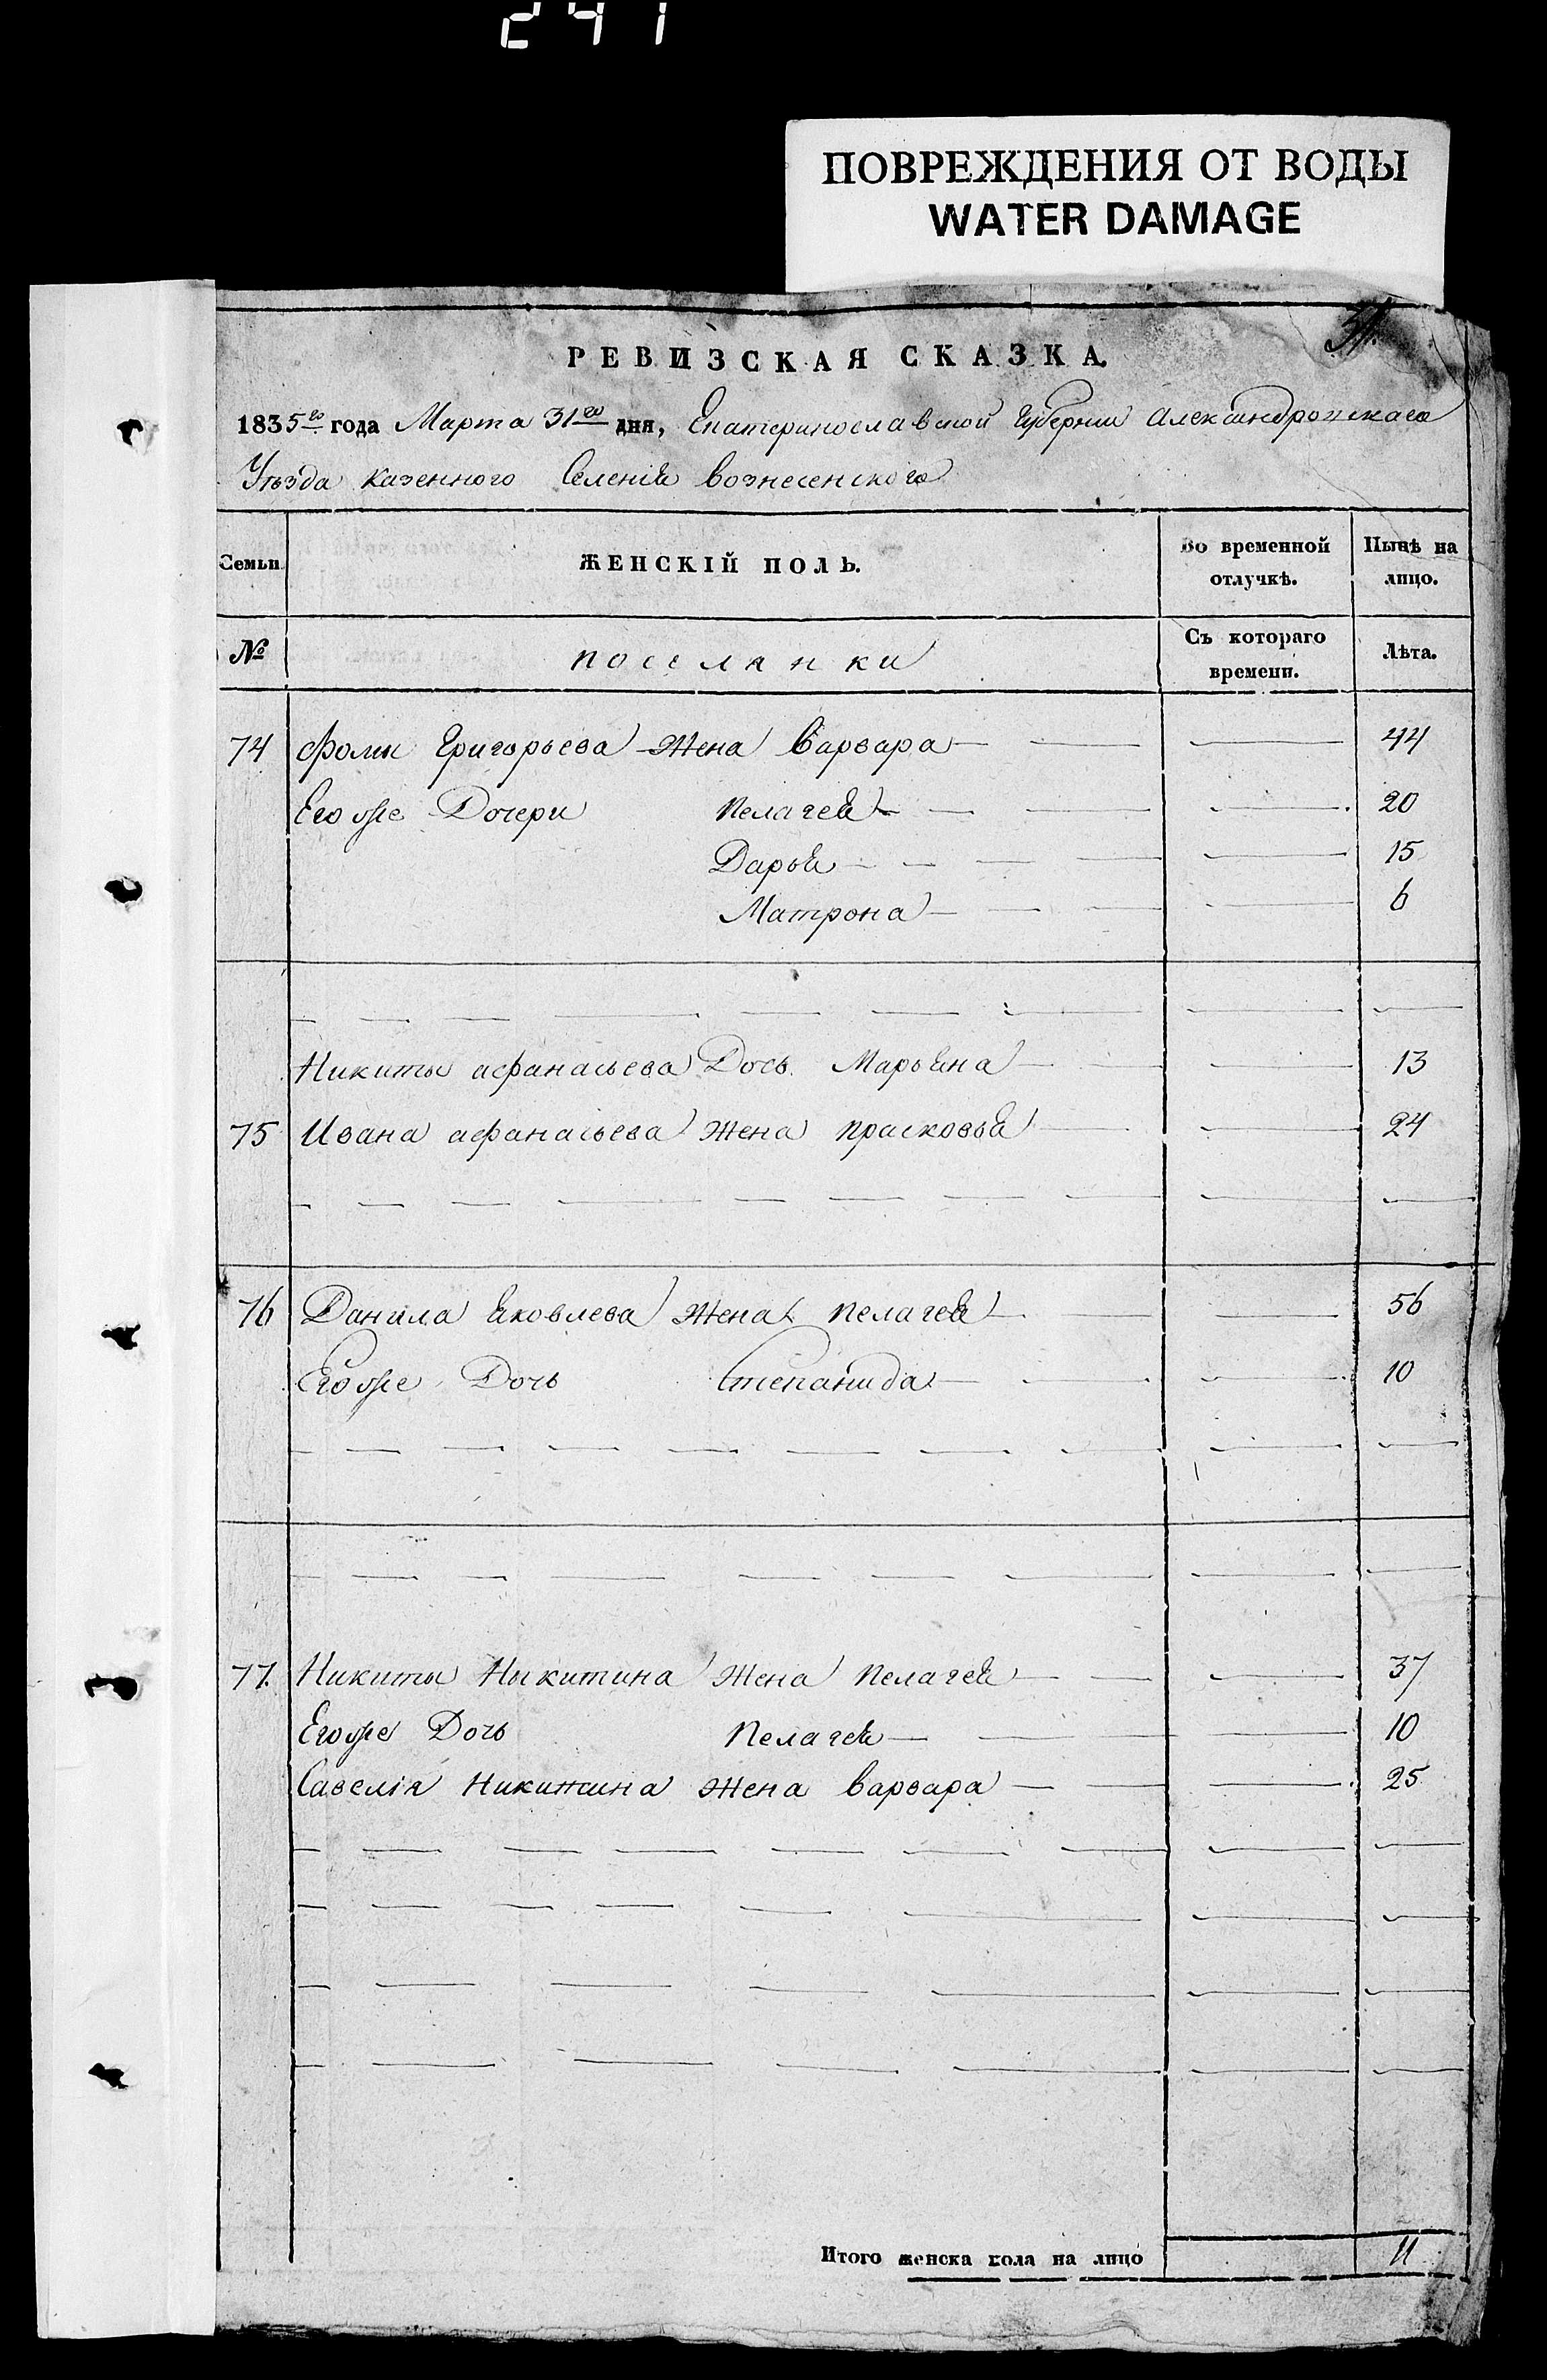 241
ПОВРЕЖДЕНИЯ ОТ ВОДЫ
WATER DAMAGE
РЕВИЗСКАЯ СКАЗКА.
1835го года Марта 31го дня, Екатеринославской Губернии Александровскаго
Уѣзда казенного Селения вознесенского
Семьи ЖЕНСКІЙ ПОЛЪ. Во временной отлучкѣ. Нынѣ на лицо.
№ поселянки Съ котораго времени. Лѣта.
74 Фомы Григорьева Жена Варвара 44
Его же Дочери Пелагея 20
Дарья 15
Матрона 6
Никиты афанасьева Дочь Марьяна 13
75 Ивана афанасьева Жена прасковья 24
76 Данила яковлева Жена пелагея 56
Его же Дочь Степанида 10
77 Никиты Никитина Жена пелагея 37
Его же Дочь пелагея 10
Савелія Никитина Жена варвара 25
Итого женска пола на лицо 11